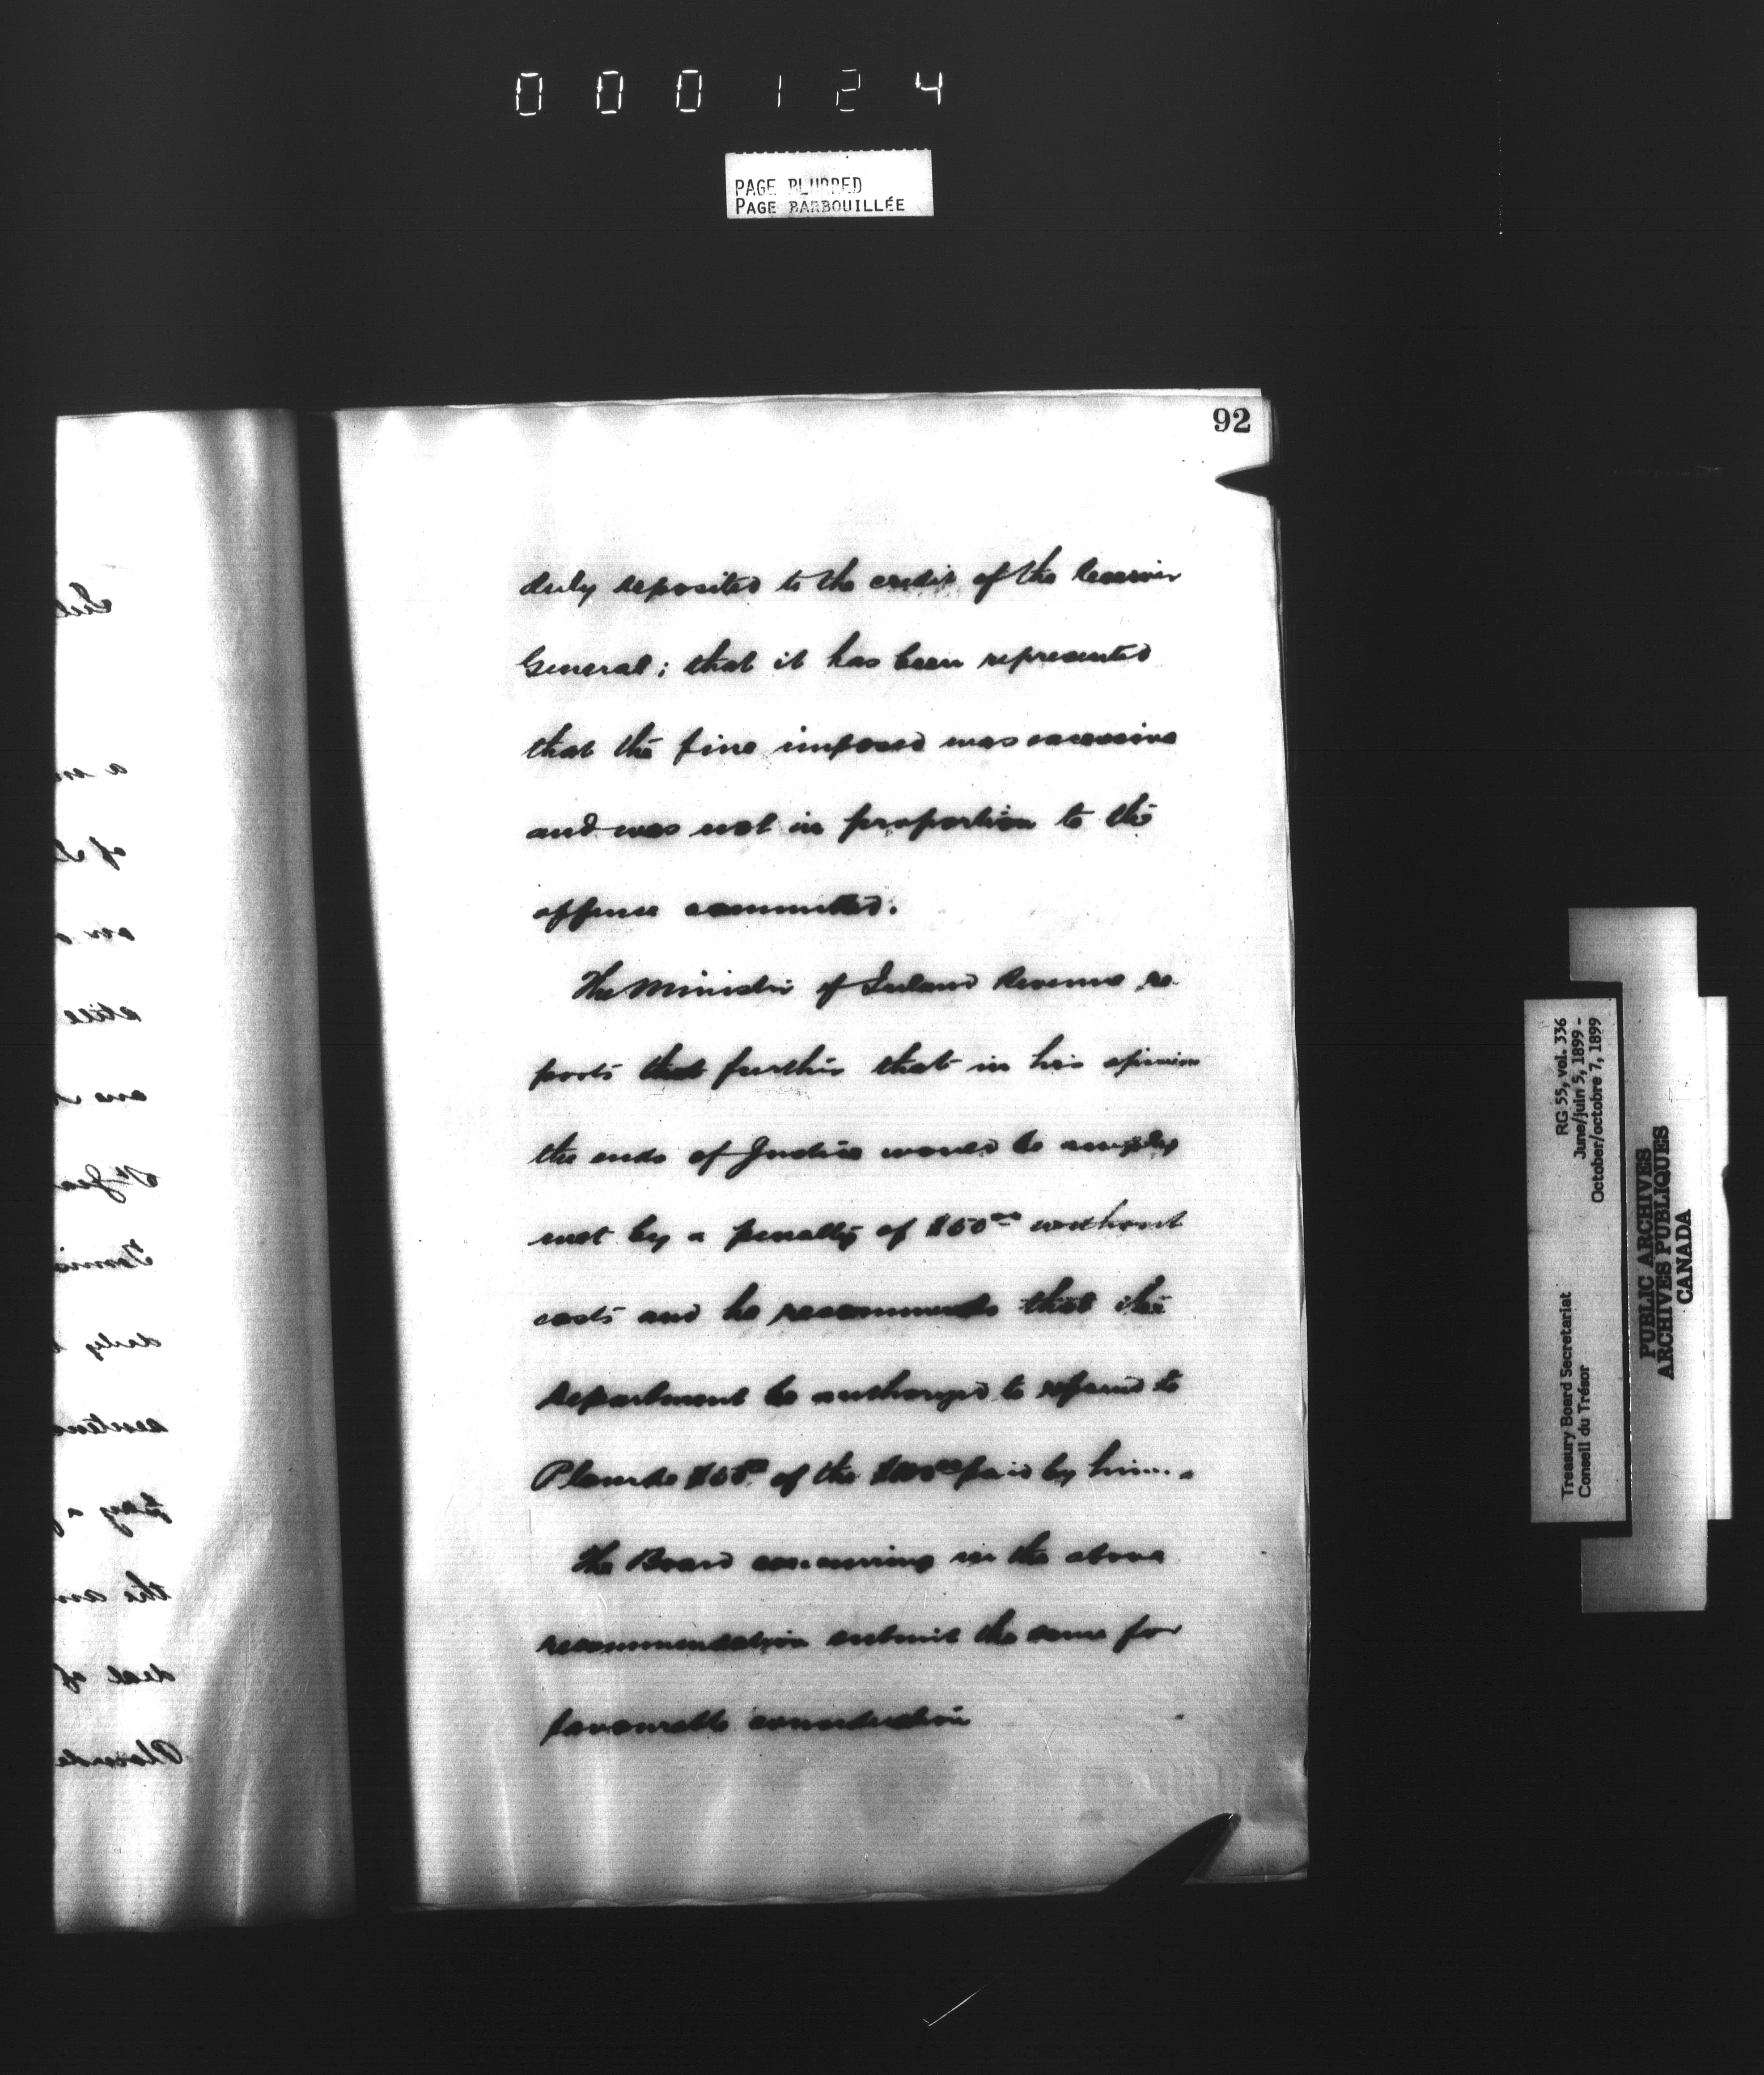 000124
PAGE BLURRED
PAGE BARBOUILLÉE
92
duly deposited to the credit of the Receiver
General; that it has been represented
that the fine imposed was excessive
and was not in proportion to the
offence committed.
The Minister of Inland Revenue re-
ports that further that in his opinion
the ends of Justice would be amply
met by a penalty of $50.00 without
costs and he recommends that the
Department be authorized to refund to
Plourde $50.00 of the $100.00 paid by him.
The Board concurring in the above
recommendation submit the same for
favourable consideration
a
of
still
duly
pay a
the am
deal of
Plourde
Treasury Board Secretariat RG 55, vol. 336
Conseil du Trésor June/juin 5, 1899 -
October/octobre 7, 1899
PUBLIC ARCHIVES
ARCHIVES PUBLIQUES
CANADA